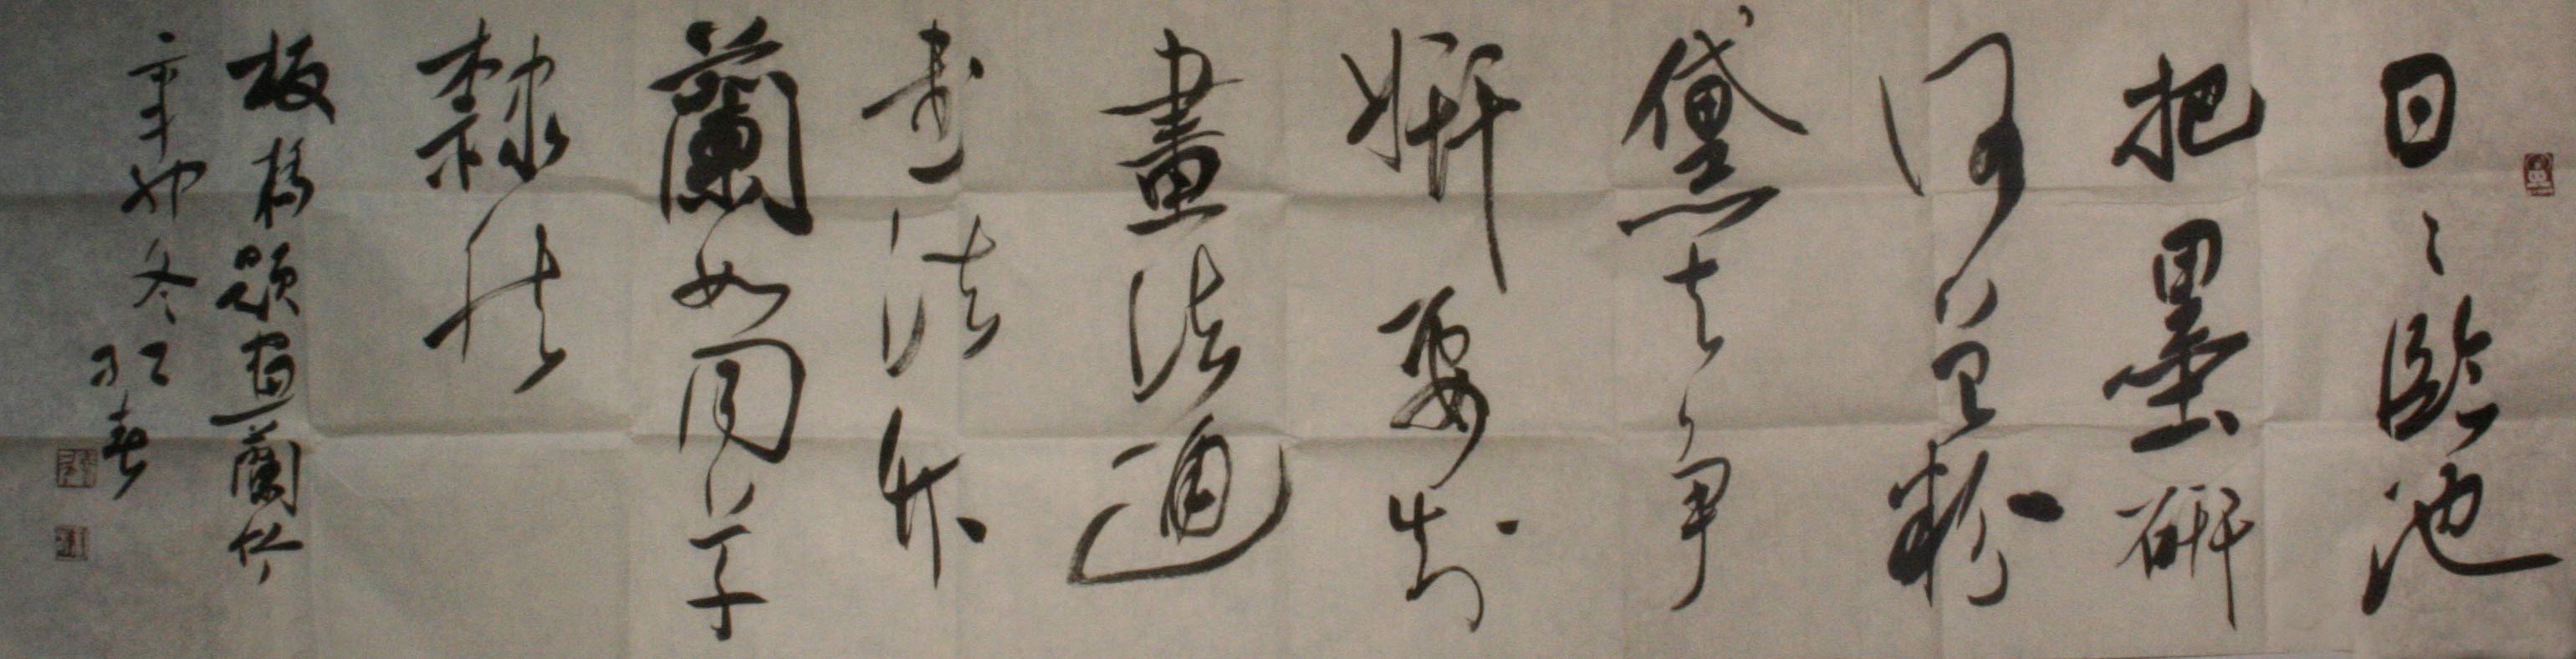 日々臨池
把墨研
何曾粉
黛去爭
妍要知
畫法通
書法竹
蘭如同草
隸然
板橋題畫蘭竹
辛卯冬 春